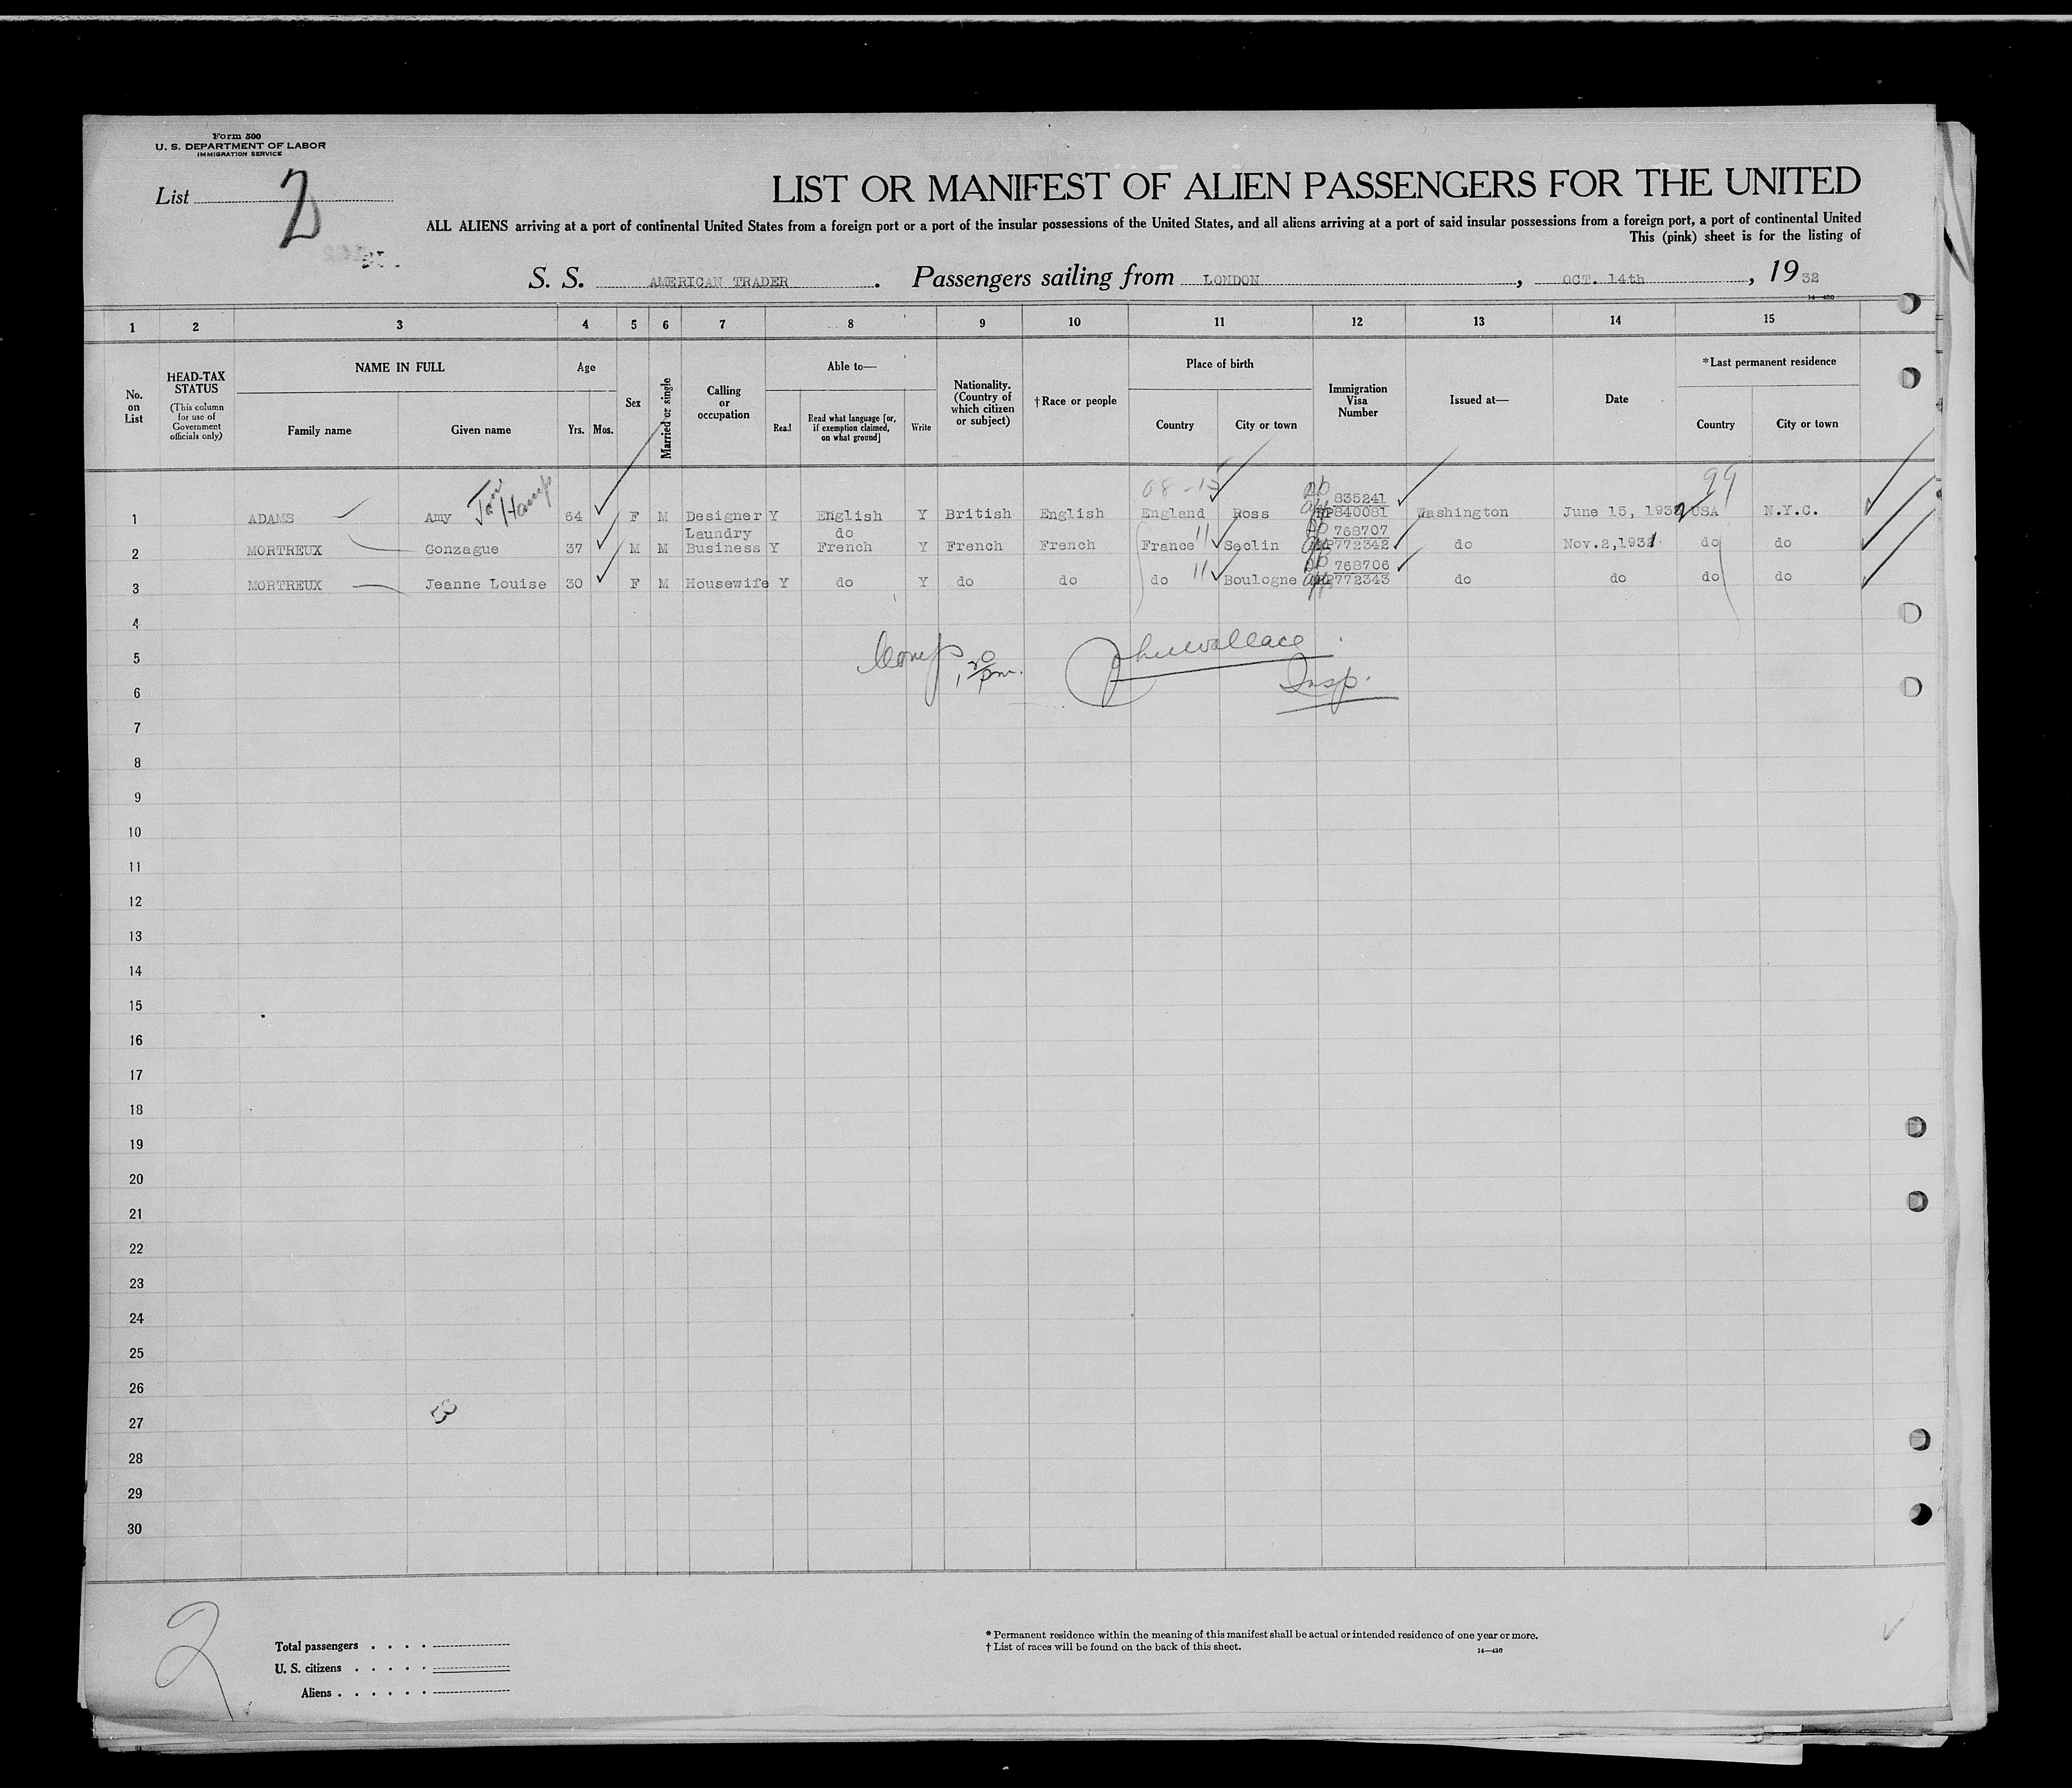 Form 500
U. S. DEPARTMENT OF LABOR
IMMIGRATION SERVICE
List 2
LIST OR MANIFEST OF ALIEN PASSENGERS FOR THE UNITED
ALL ALIENS arriving at a port of continental United States from a foreign port or a port of the insular possessions of the United States, and all aliens arriving at a port of said insular possessions from a foreign port, a port of continental United
This (pink) sheet is for the listing of
S. S. AMERICAN TRADER . Passengers sailing from LONDON , OCT. 14th , 19 32
14—430
1 2 3 4 5 6 7 8 9 10 11 12 13 14 15
No. on List
HEAD-TAX STATUS
(This column for use of Government officials only)
NAME IN FULL
Family name Given name
Age
Yrs. Mos.
Sex
Married or single
Calling or occupation
Able to—
Read Read what language [or, if exemption claimed, on what ground] Write
Nationality. (Country of which citizen or subject)
†Race or people
Place of birth
Country City or town
Immigration Visa Number
Issued at—
Date
*Last permanent residence
Country City or town
08-15 99
835241
1 ADAMS Amy 64 F M Designer Y English Y British English England Ross RP840081 Washington June 15, 1932 USA N.Y.C.
Laundry do 768707
2 MORTREUX Gonzague 37 M M Business Y French Y French French France 11 Seclin RP772342 do Nov.2,1931 do do
768706
3 MORTREUX Jeanne Louise 30 F M Housewife Y do Y do do do 11 Boulogne RP772343 do do do do
4
5
Comp 1 20 pm. Wallace
Insp.
6
7
8
9
10
11
12
13
14
15
16
17
18
19
20
21
22
23
24
25
26
27
28
29
30
2
Total passengers . . . .
U. S. citizens . . . . .
Aliens . . . . . .
* Permanent residence within the meaning of this manifest shall be actual or intended residence of one year or more.
† List of races will be found on the back of this sheet.
14—430